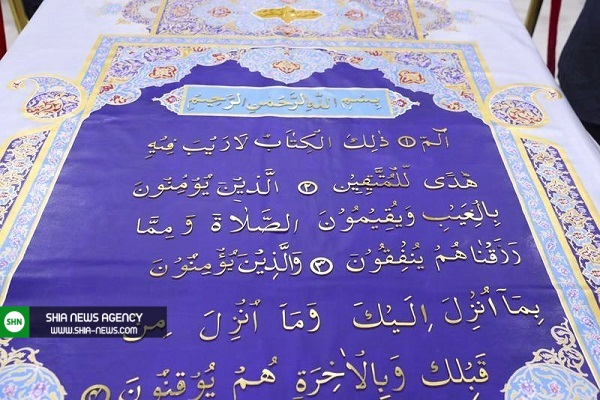 بِسْمِ اللَّهِ الرَّحْمَنِ الرَّحِيمِ
الٓمٓ ١ ذَٰلِكَ الْكِتَابُ لَا رَيْبَ فِيهِ
هُدًى لِّلْمُتَّقِينَ ٢ الَّذِينَ يُؤْمِنُونَ
بِالْغَيْبِ وَيُقِيمُونَ الصَّلَاةَ وَمِمَّا
رَزَقْنَاهُمْ يُنْفِقُونَ ٣ وَالَّذِينَ يُؤْمِنُونَ
بِمَا أُنْزِلَ إِلَيْكَ وَمَا أُنْزِلَ مِنْ
قَبْلِكَ وَبِالْآخِرَةِ هُمْ يُوقِنُونَ ٤
SHIA NEWS AGENCY
WWW.SHIA-NEWS.COM
SHN